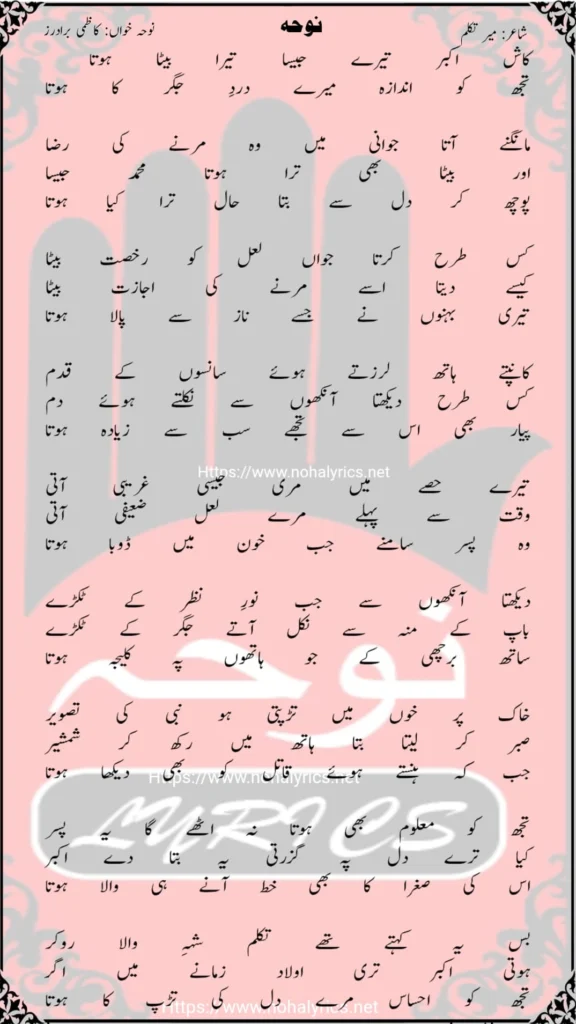 نوحہ
شاعر: میر تکلم
نوحہ خواں: کاظمی برادرز
کاش اکبر تیرے جیسا تیرا بیٹا ہوتا
تجھ کو اندازہ میرے دردِ جگر کا ہوتا
مانگنے آتا جوانی میں وہ مرنے کی رضا
اور بیٹا بھی ترا ہوتا محمد جیسا
پوچھ کر دل سے بتا حال ترا کیا ہوتا
کس طرح کرتا جواں لعل کو رخصت بیٹا
کیسے دیتا اسے مرنے کی اجازت بیٹا
تیری بہنوں نے جسے ناز سے پالا ہوتا
کانپتے ہاتھ لرزتے ہوئے سانسوں کے قدم
کس طرح دیکھتا آنکھوں سے نکلتے ہوئے دم
پیار بھی اس سے تجھے سب سے زیادہ ہوتا
Https://www.nohalyrics.net
تیرے حصے میں مری جیسی غریبی آتی
وقت سے پہلے مرے لعل ضعیفی آتی
وہ پسر سامنے جب خون میں ڈوبا ہوتا
دیکھتا آنکھوں سے جب نورِ نظر کے ٹکڑے
باپ کے منہ سے نکل آتے جگر کے ٹکڑے
ساتھ برچھی کے جو ہاتھوں پہ کلیجہ ہوتا
نوحہ
خاک پر خوں میں تڑپتی ہو نبی کی تصویر
صبر کر لیتا بتا ہاتھ میں رکھ کر شمشیر
جب کہ ہنستے ہوئے قاتل کو بھی دیکھا ہوتا
Https://www.nohalyrics.net
LYRICS
تجھ کو معلوم بھی ہوتا نہ اٹھے گا یہ پسر
کیا ترے دل پہ گزرتی یہ بتا دے اکبر
اس کی صغرا کا بھی خط آنے ہی والا ہوتا
بس یہ کہتے تھے تکلم شہِ والا روکر
ہوتی اکبر تری اولاد زمانے میں اگر
تجھ کو احساس مرے دل کی تڑپ کا ہوتا
Https://www.nohalyrics.net